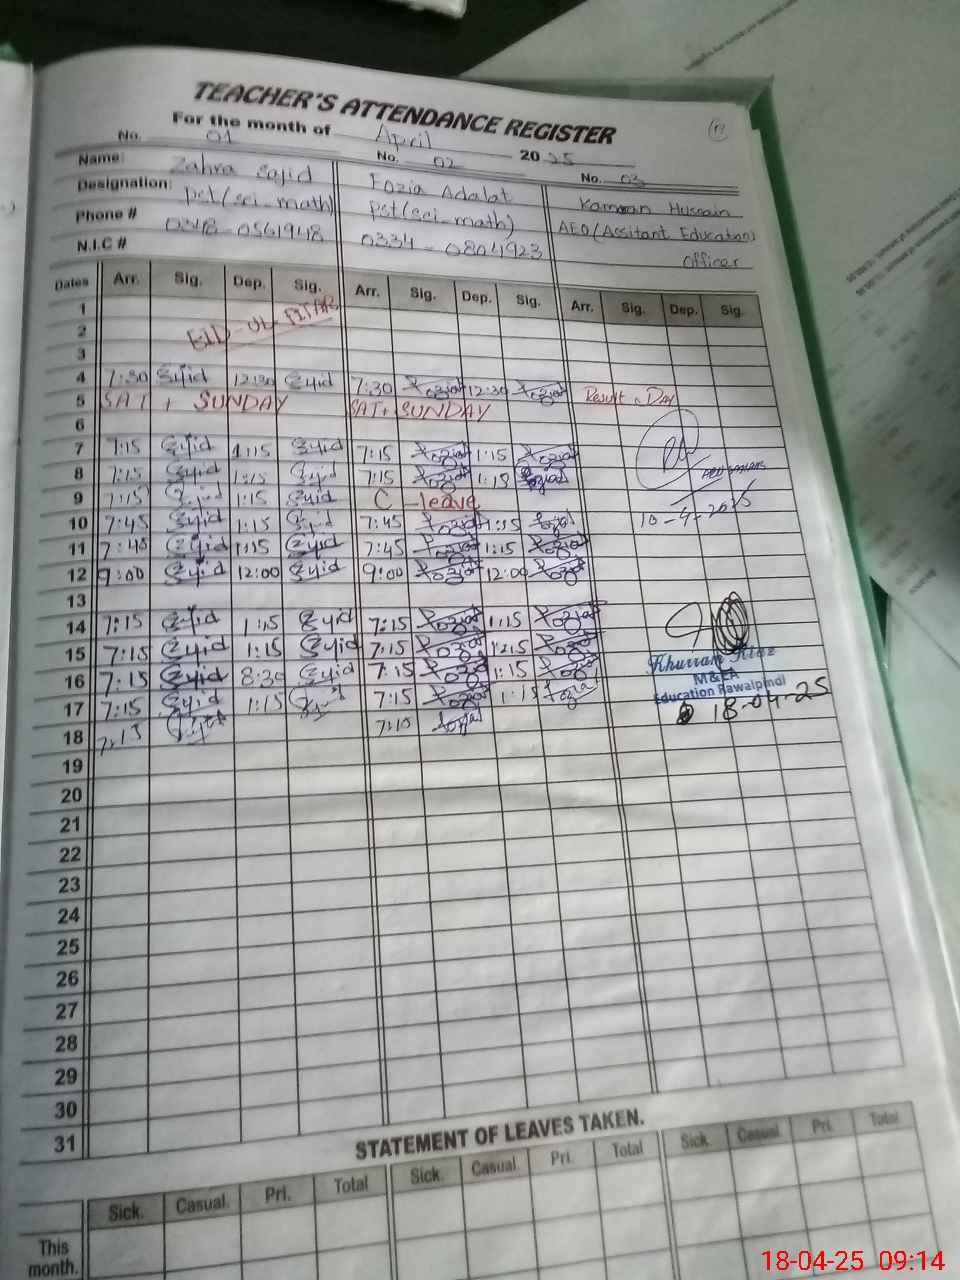 TEACHER'S ATTENDANCE REGISTER
For the month of April 2025
No. 01 No. 02 No. 03
Name: Zahra Sajid Fozia Adalat Kamran Hussain
Designation: pst(sci-math) pst(sci-math) AEO(Assitant Education) officer
Phone # 0348-0561948 0334-0804923
N.I.C #
Dates Arr. Sig. Dep. Sig. Arr. Sig. Dep. Sig. Arr. Sig. Dep. Sig.
1 EID-UL-FITAR
2
3
4 7:30 Sajid 12:30 Sajid 7:30 Fozia 12:30 Fozia
5 SAT + SUNDAY SAT + SUNDAY Result Day
6
7 7:15 Sajid 1:15 Sajid 7:15 Fozia 1:15 Fozia
8 7:15 Sajid 1:15 Sajid 7:15 Fozia 1:15 Fozia
9 7:15 Sajid 1:15 Sajid C leave
10 7:45 Sajid 1:15 Sajid 7:45 Fozia 1:15 Fozia 10-4-2025
11 7:45 Sajid 1:15 Sajid 7:45 Fozia 1:15 Fozia
12 9:00 Sajid 12:00 Sajid 9:00 Fozia 12:00 Fozia
13
14 7:15 Sajid 1:15 Sajid 7:15 Fozia 1:15 Fozia
15 7:15 Sajid 1:15 Sajid 7:15 Fozia 1:15 Fozia Khurram Riaz
16 7:15 Sajid 8:30 Sajid 7:15 Fozia 1:15 Fozia M&EA
17 7:15 Sajid 1:15 7:15 Fozia 1:15 Fozia Education Rawalpindi
18 7:15 7:10 Fozia 18-04-25
19
20
21
22
23
24
25
26
27
28
29
30
31
STATEMENT OF LEAVES TAKEN.
Sick. Casual. Pri. Total Sick. Casual Pri. Total Sick. Casual Pri. Total
This month.
18-04-25 09:14